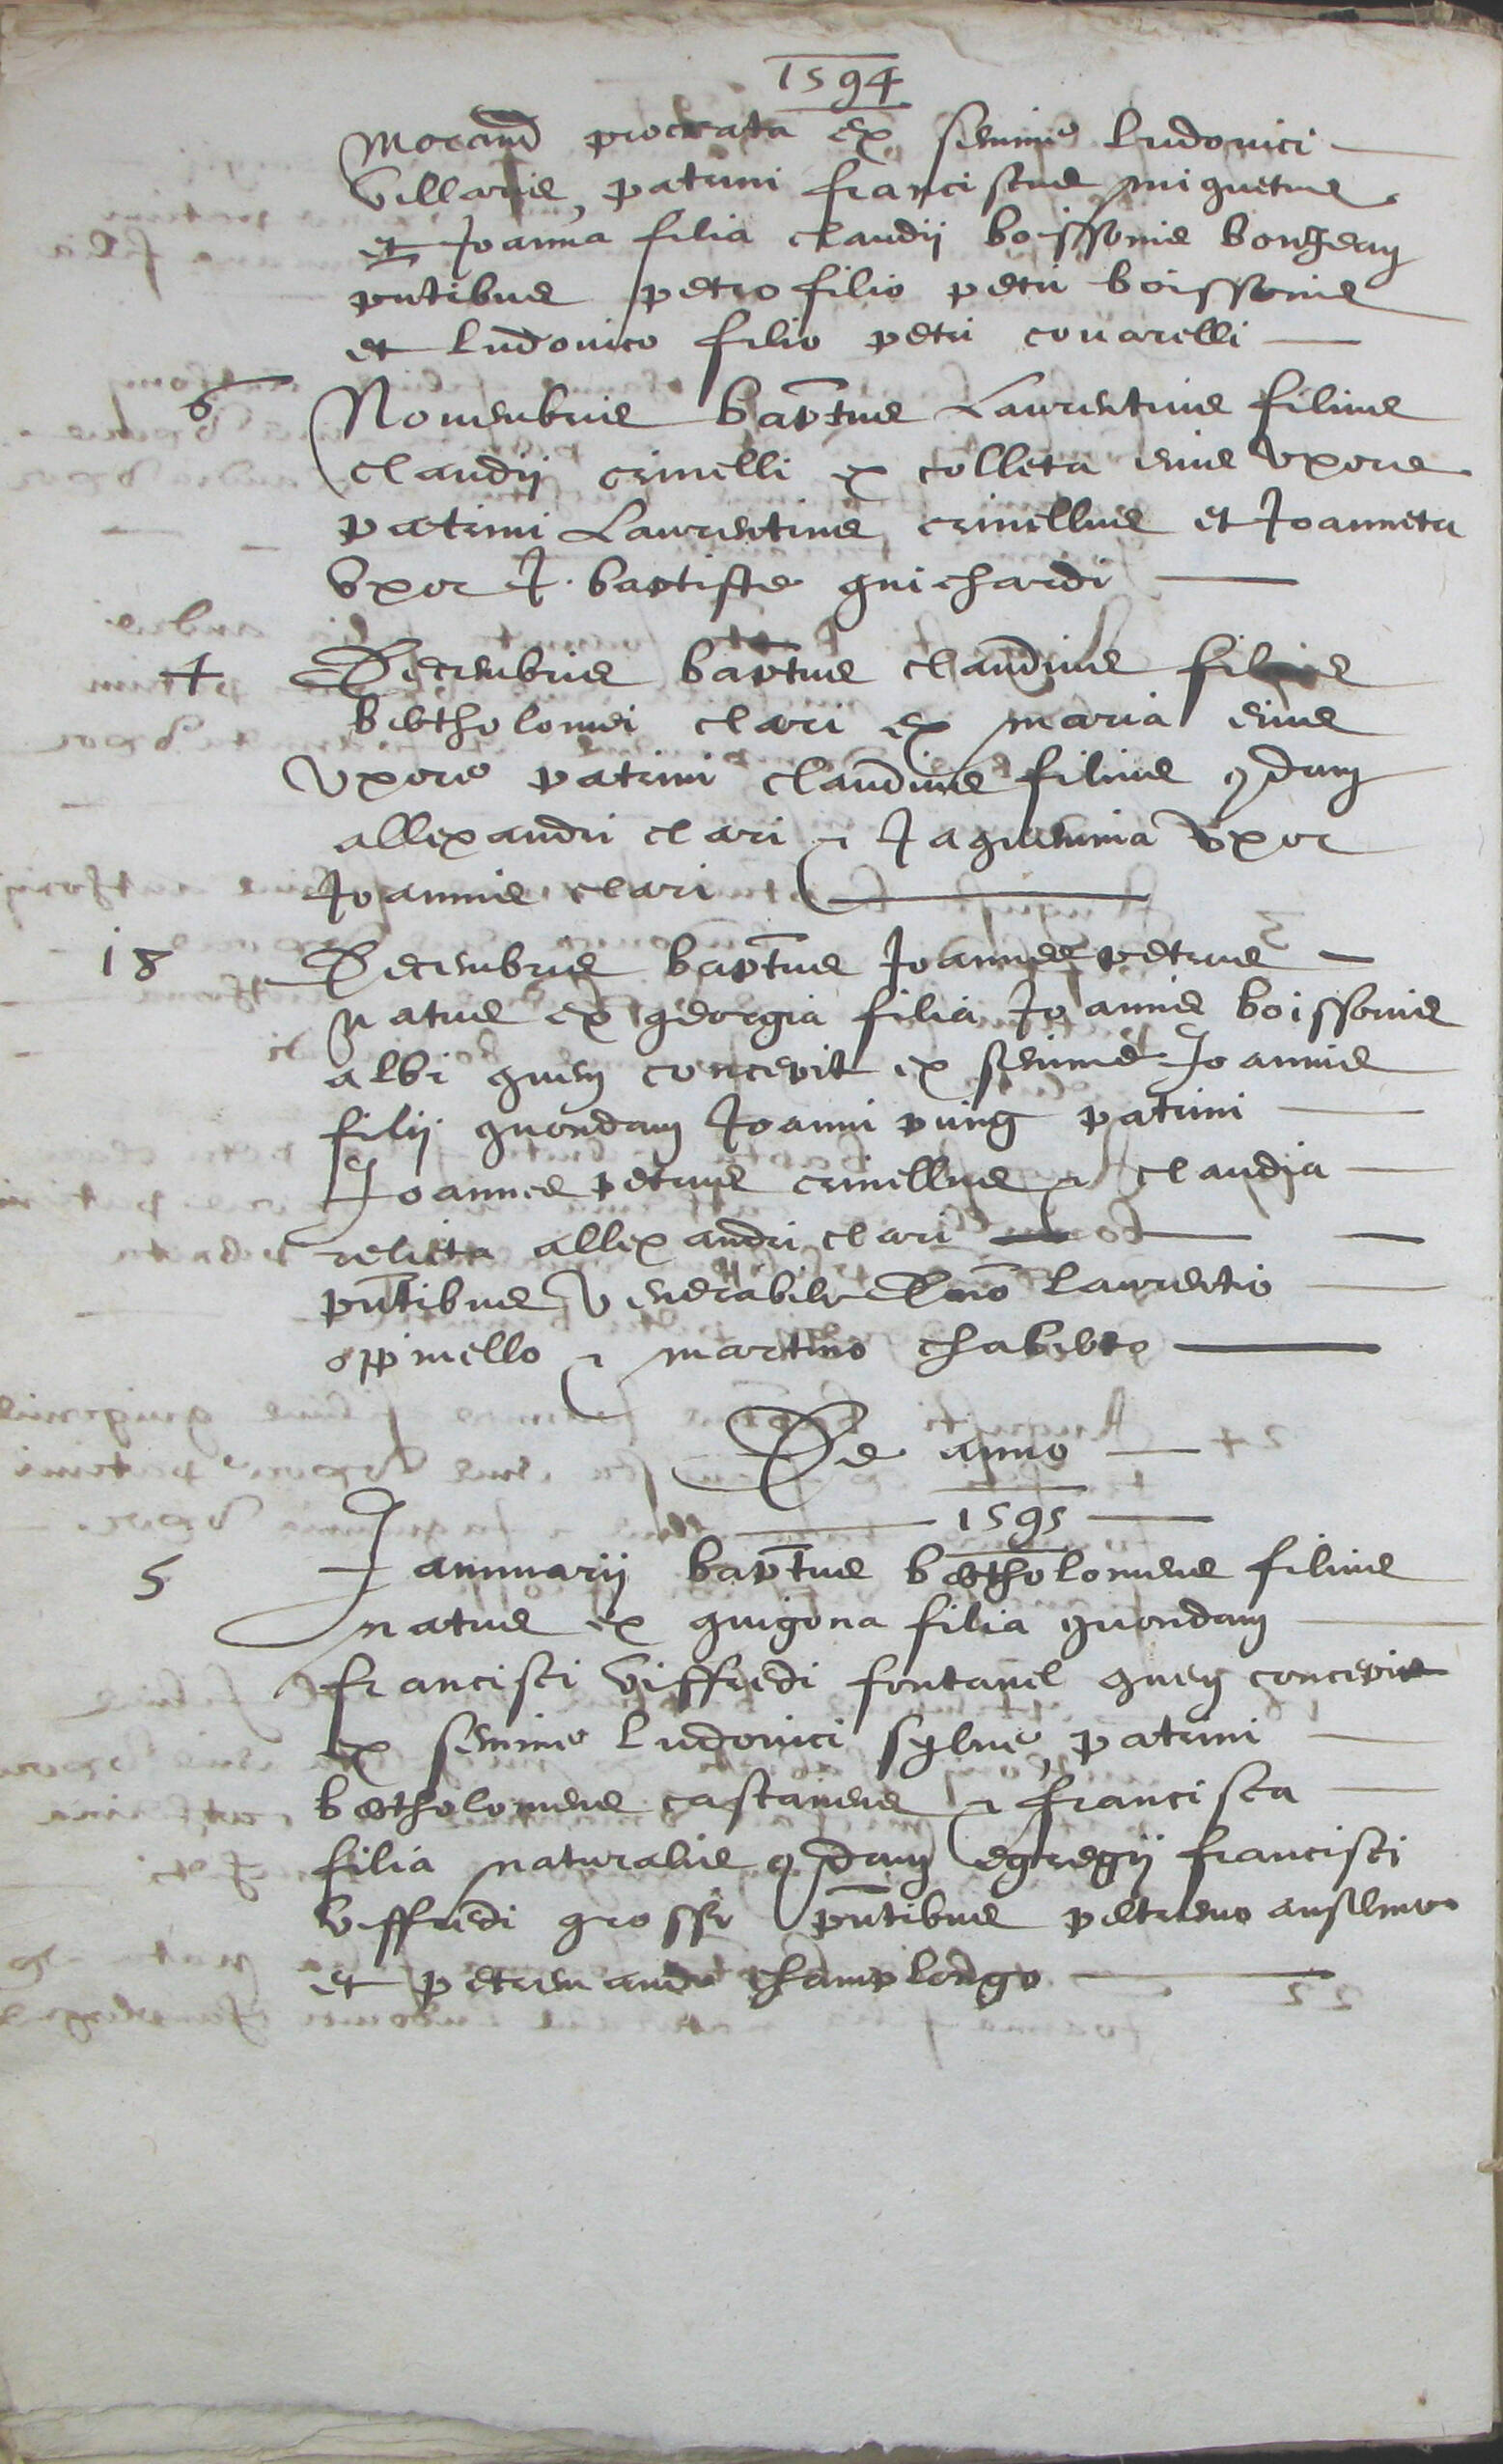 1594
Morand procreata ex semine Ludovici
Villaris, patrini franciscus miguetus
et Joanna filia claudii boissonis bongean
pntibus petro filio petri boissonis
et Ludovico filio petri covarelli
6 Novembris baptus Laurentius filius
claudii crinelli ex colleta eius uxore
patrini Laurentius crinellus et Joanneta
Uxor J. baptiste guichardi
4 Decembris baptus claudius filius
bertholomei clari ex maria eius
uxore patrini claudius filius qdam
allexandri clari & Jaquemina uxor
Joannis clari
18 Decembris baptus Joannes petrus
natus ex georgia filia Joannis boissonis
albi quem concepit ex semine Joannis
filii quondam Joanni puing patrini
Joannes petrus crinellus & claudia
relicta allexandri clari
pntibus venerabile Dno Laurentio
opinello & martino chaberto
De anno
1595
5 Januarii baptus bertholomeus filius
natus ex guigona filia quondam
francisci Viffredi fontanel quem concepit
ex semine Ludovici sylve, patrini
bertholomeus castaneus & francisca
filia naturalis qdam egregii francisci
Viffredi grossi pntibus petremo anselmo
et petremando champlongo